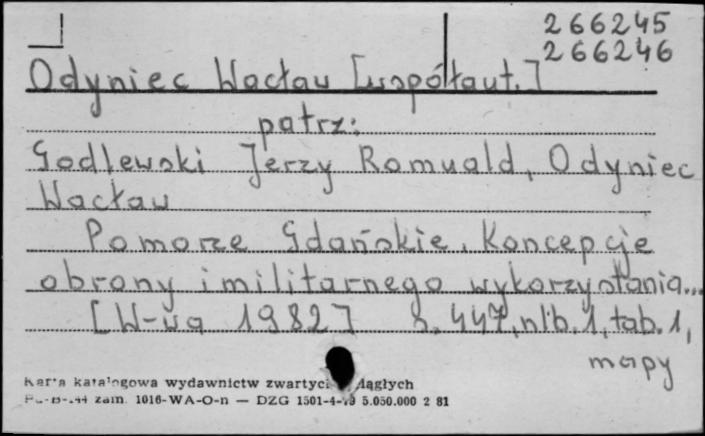 266245
266246
Odyniec Wacław [współaut.]
patrz:
Godlewski Jerzy Romuald, Odyniec
Wacław
Pomorze Gdańskie. Koncepcje
obrony i militarnego wykorzystania...
[W-wa 1982] s. 447, nlb. 1, tab. 1,
mapy
Karta katalogowa wydawnictw zwartych
zam. 1016-WA-O-n — DZG 1501-4-79 5.050.000 2 81